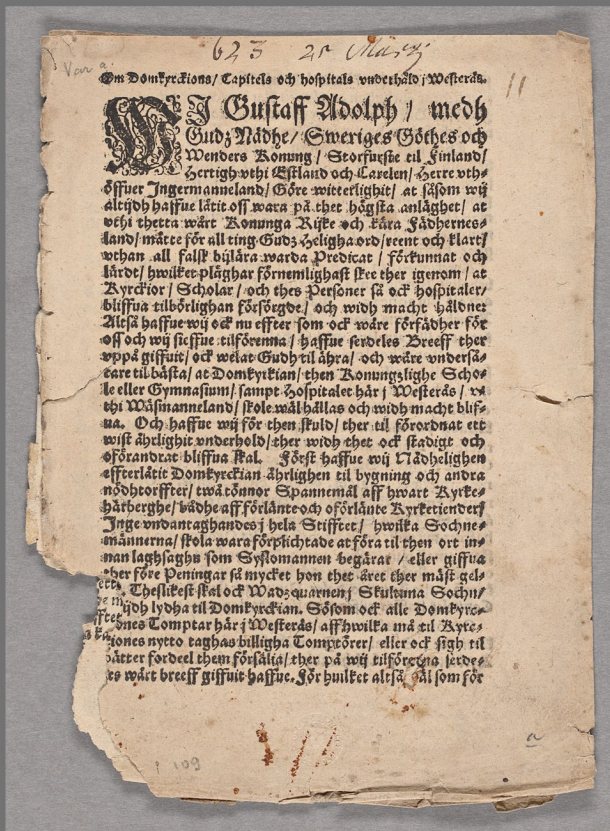 623 25 Martij
Var a.
Om Domkyrckions/ Capitels och hospitals vnderhåld j Westerås.
11
WIJ Gustaff Adolph/ medh
Gudz Nådhe/ Sweriges Göthes och
Wenders Konung/ Storfurste til Finland/
Hertigh vthi Estland och Carelen/ Herre vth-
öffuer Ingermanneland/ Göre witterlighit/ at såsom wij
altijdh haffue låtit oss wara på thet högsta anläghet/ at
vthi thetta wårt Konunga Rijke och kära Fädhernes-
land/ måtte för all ting Gudz Heligha ord/ reent och klart/
vthan all falsk bijlära warda Predicat/ förkunnat och
lärdt/ hwilket plåghar förnemlighast skee ther igenom/ at
Kyrckior/ Scholar/ och thes Personer så ock hospitaler/
bliffua tilbörlighan försörgde/ och widh macht håldne:
Altså haffue wij ock nu effter som ock wåre förfädher för
oss och wij sielffue tilförenna/ haffue serdeles Breeff ther
vppå giffuit/ ock welat Gudh til ähra/ och wåre vnderså-
tare til bästa/ at Domkyrkian/ then Konungzlighe Scho-
le eller Gymnasium/ sampt Hospitalet här j Westerås/ v-
thi Wäsmanneland/ skole wäl hållas och widh macht blif-
ua. Och haffue wij för then skuld/ ther til förordnat ett
wist åhrlighit vnderhold/ ther widh thet ock stadigt och
oförandrat bliffua skal. Först haffue wij Nådhelighen
effterlåtit Domkyrckian åhrlighen til bygning och andra
nödhtorffter/ twå tönnor Spannemål aff hwart Kyrke-
härberghe/ bådhe aff förlänte och oförlänte Kyrketiender/
Inge vndantaghandes j hela Stifftet/ hwilka Sochne-
männerna/ skola wara förplichtade at föra til then ort in-
nan laghsaghu som Syslomannen begärar/ eller giffua
ther före Peningar så mycket hon thet året ther mäst gel-
Theslikest skal ock Wadzquarnen j Skultuna Sochn/
lydha til Domkyrckian. Såsom ock alle Domkyrc-
Tomptar här j Westerås/ aff hwilka må til Kyrc-
kiones nytto taghas billigha Tomptörer/ eller ock sigh til
bätter fordeel them försälia/ ther på wij tilförenna serde-
les wårt breeff giffuit haffue. För hwilket altså såsom för
109
a